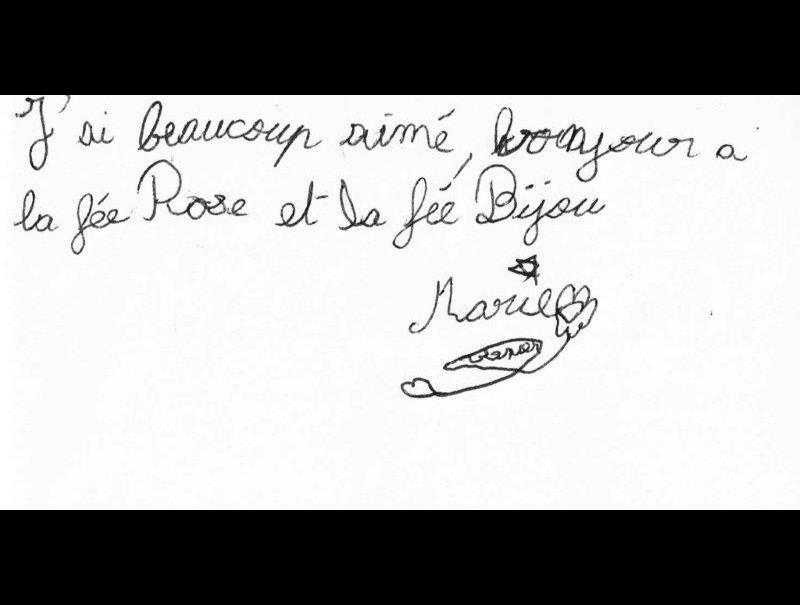 J'ai beaucoup aimé, bonjour a
la fée Rose et la feé Bijou
Marie